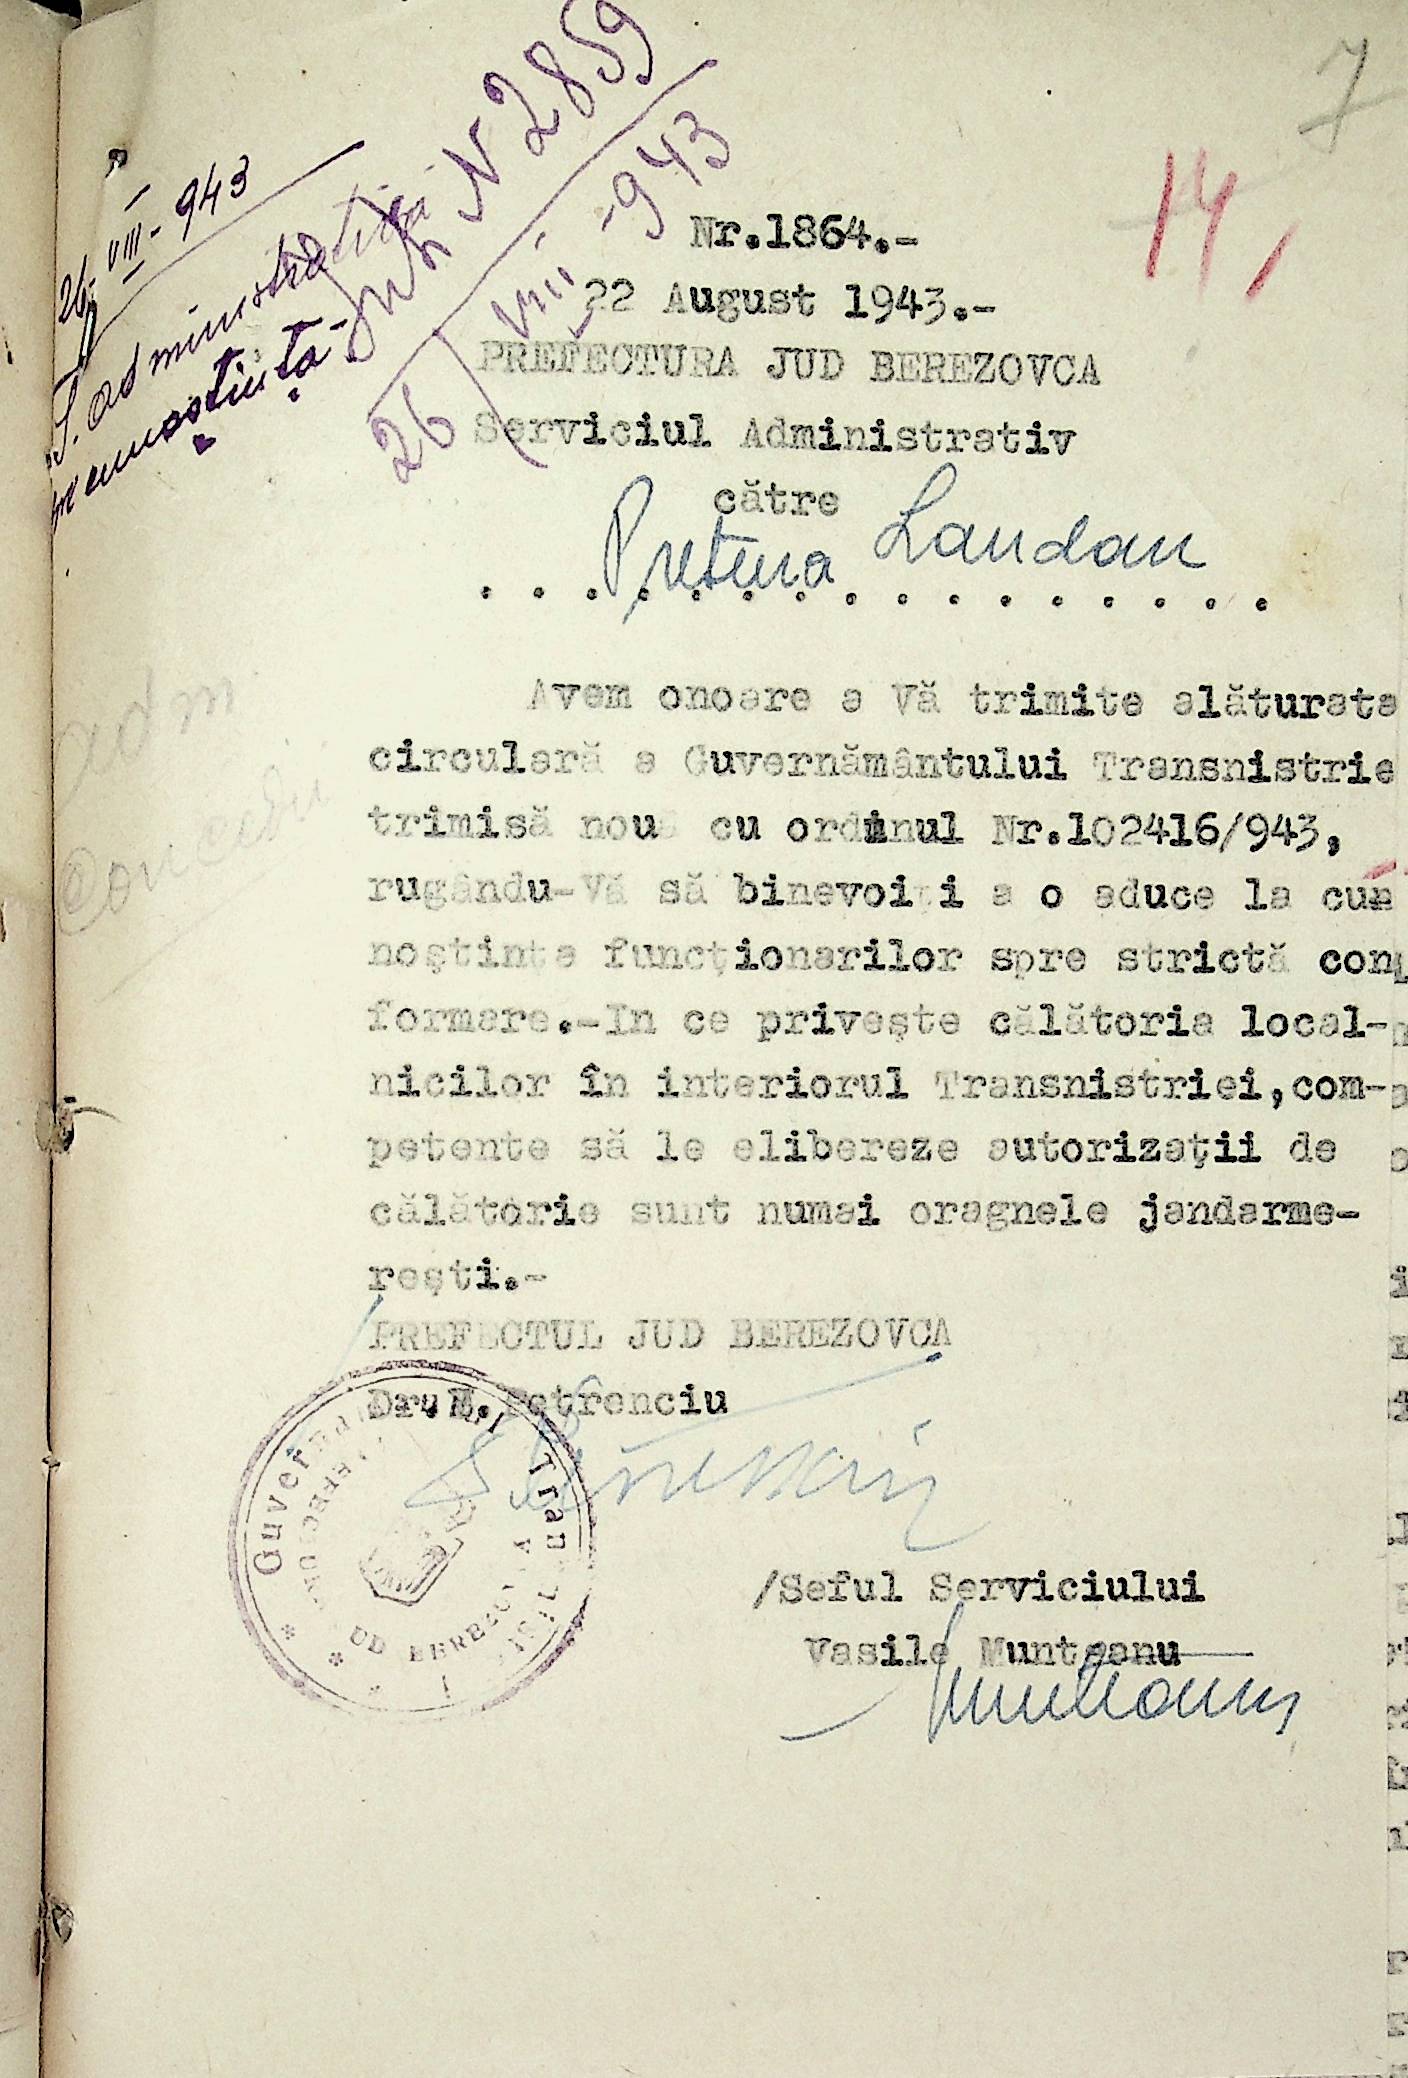 7
14
26-VIII-943
S. administrativă
pt cunoștința
Int N 2859
26 VIII -943
Nr.1864.-
22 August 1943.-
PREFECTURA JUD BEREZOVCA
Serviciul Administrativ
către
Pretura Landau
. . . . . . . . . . . . . . . .
Avem onoare a Vă trimite alăturata
circulară a Guvernământului Transnistrie
trimisă nouă cu ordinul Nr.102416/943,
rugându-Vă să binevoiți a o aduce la cu
noștința funcționarilor spre strictă con
formare.-In ce privește călătoria local-
nicilor în interiorul Transnistriei,com-
petente să le elibereze autorizații de
călătorie sunt numai oragnele jandarme-
rești.-
PREFECTUL JUD BEREZOVCA
Dr. E. Petrenciu
/Seful Serviciului
Vasile Munteanu
Munteanu
adm